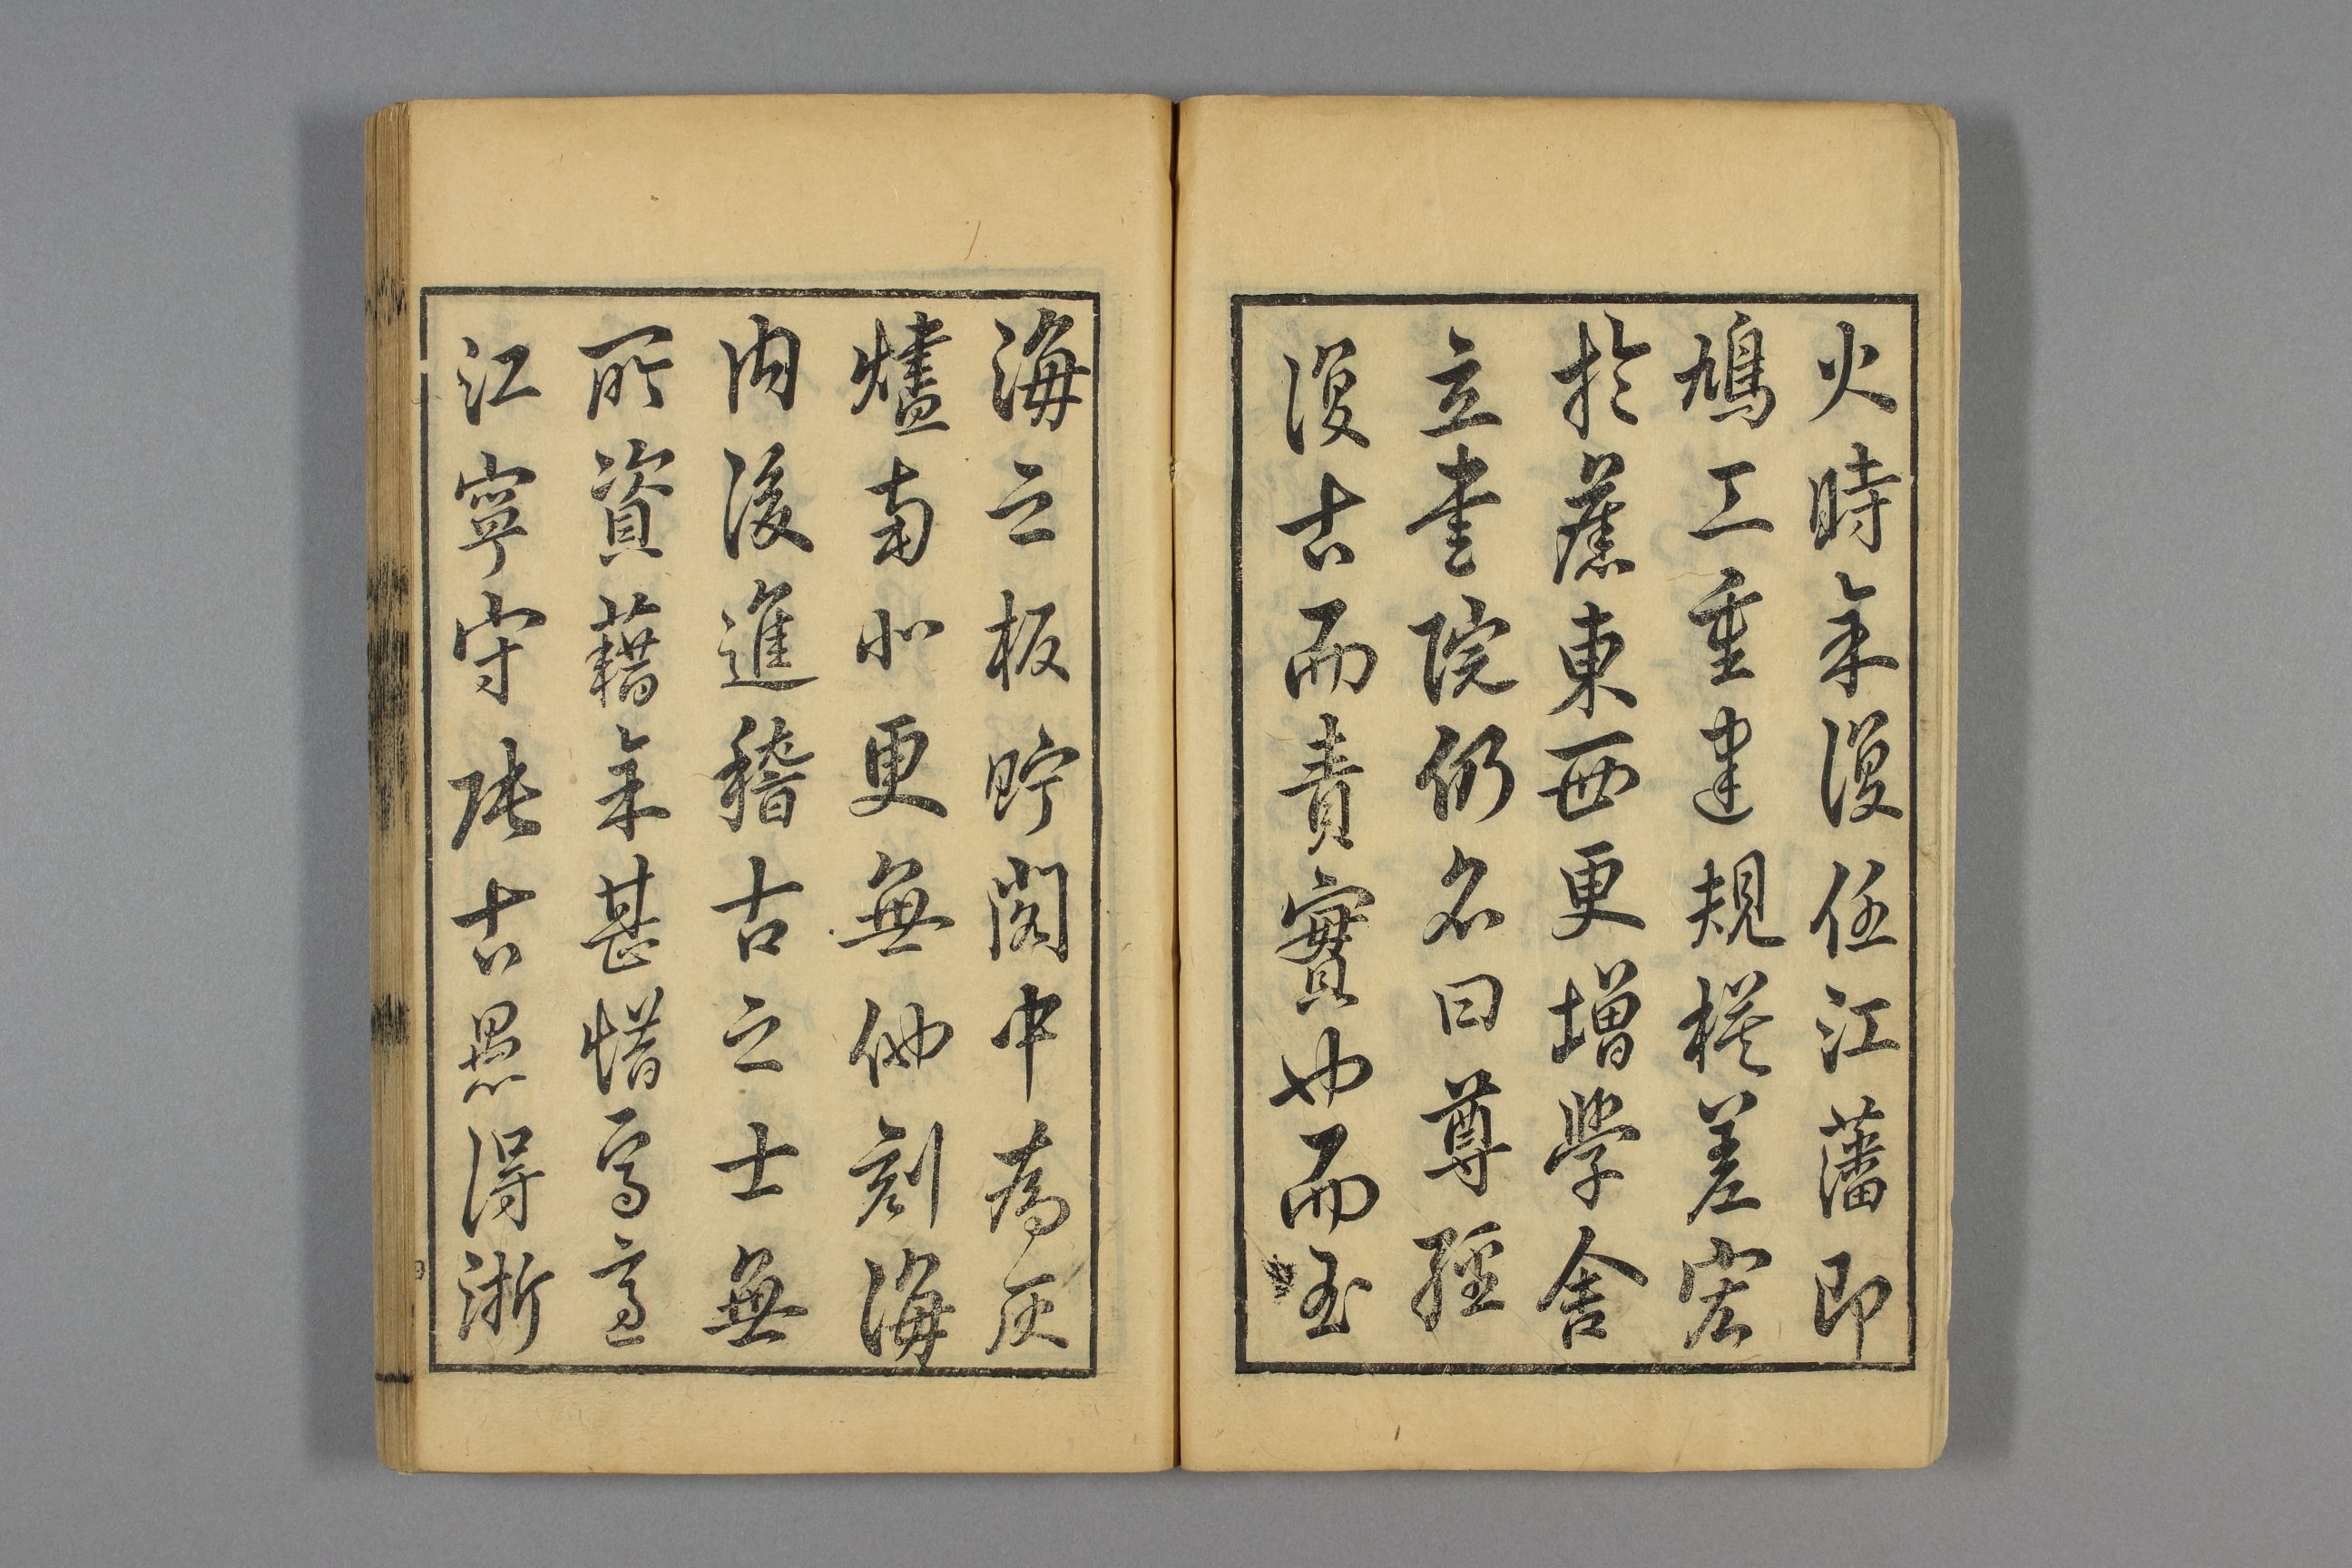 火時余復任江藩即
鳩工重建規模差宏
於舊東西更增學舍
立書院仍名曰尊經
復古而責實也而玉
海之板貯閣中爲灰
燼南北更無他刻海
内後進稽古之士無
所資藉余甚惜焉適
江寧守張古愚得浙